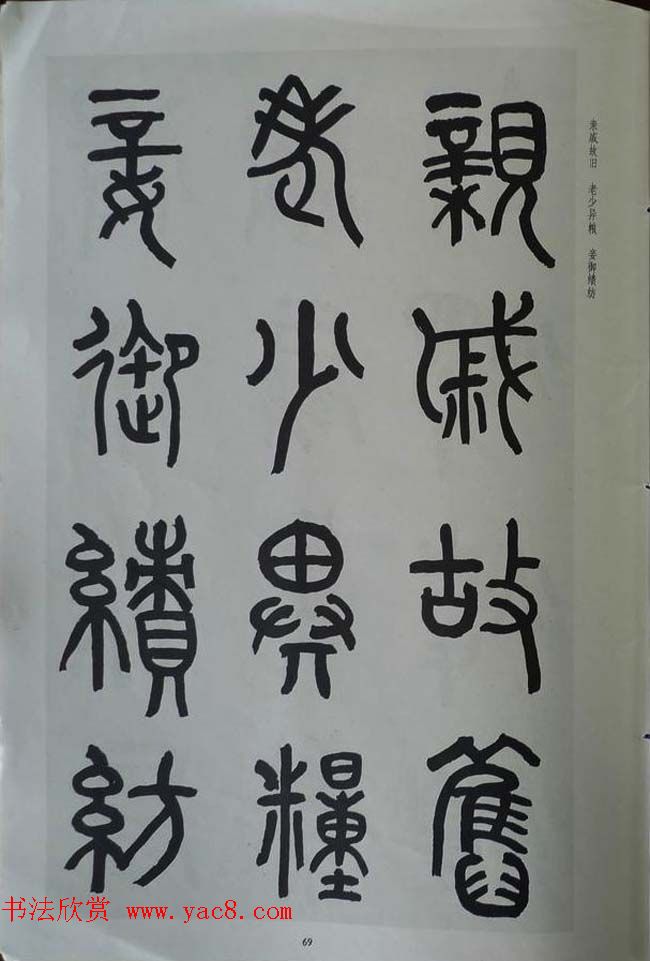 親戚故舊
老少異糧
妾御績紡
亲戚故旧 老少异粮 妾御绩纺
书法欣赏 www.yac8.com
69